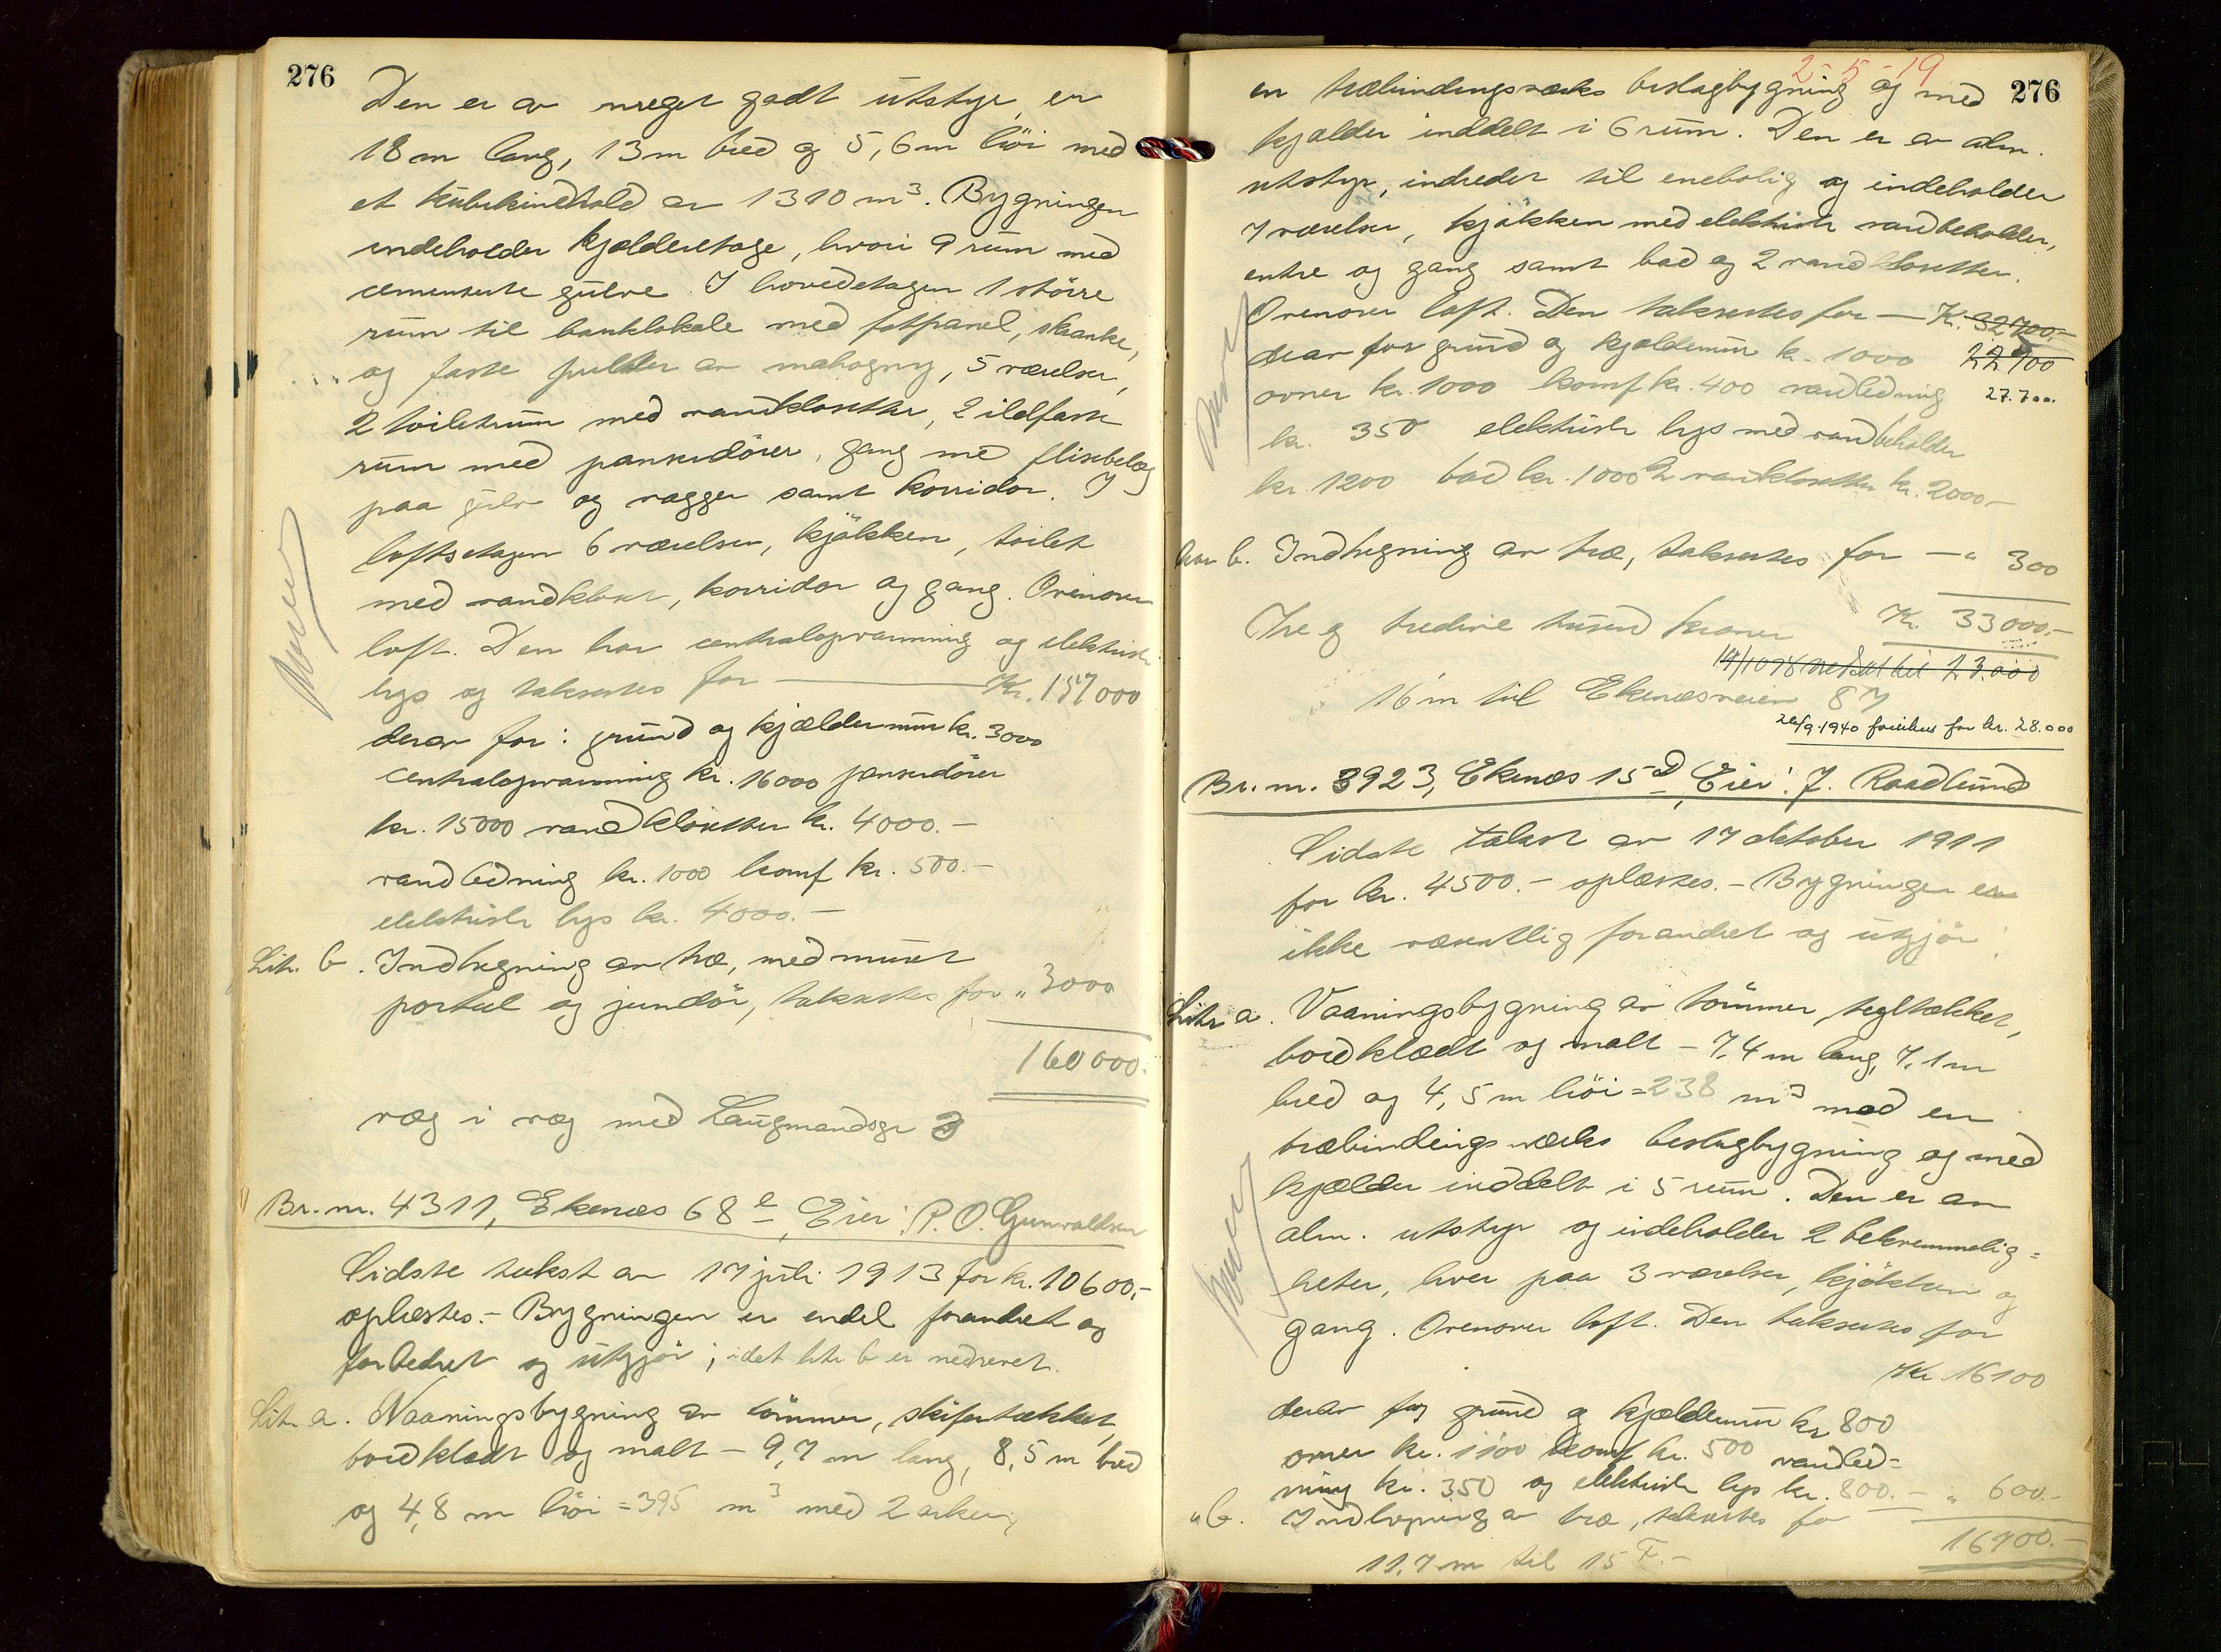 276
Den er av meget godt utstyr, er
18 m lang, 13 m bred og 5,6 m höi med
et kubikindhold av 1310 m³. Bygningen
indeholder kjælderetage, hvori 9 rum med
cementerte gulve. I hovedetagen 1 større
rum til banklokale med fotpanel, skranke,
og faste pulter av mahogny, 5 værelser,
2 toiletrum med vandklosetter, 2 ildfaste
rum med panserdörer, gang med flisebelæg
paa gulv og vægger samt korridor. I
loftsetagen 6 værelser, kjökken, toilet
med vandkloset, korridor og gang. Ovenover
loft. Den har centralopvarmning og elektrisk
lys og takseres for — Kr. 157 000
derav for: grund og kjældermur kr. 3000
centralopvarmning kr. 16000 panserdörer
kr. 15000 vandklosetter kr. 4000.-
vandledning kr. 1000 komf kr. 500.-
elektrisk lys kr. 4000.-
Litr. b. Indhegning av træ, med muret
portal og jerndör, takseres for " 3000
160 000.
væg i væg med Laugmandsgt 3
Br. nr. 4311, Ekenæs 68 e, Eier: P. O. Gunvaldsen
Sidste takst av 17 juli 1913 for kr. 10600.-
oplæstes.- Bygningen er endel forandret og
forbedret og utgjör; idet litr b er nedrevet.
Litr a. Vaaningsbygning av tömmer, skifertækket,
bordklædt og malt - 9,7 m lang, 8,5 m bred
og 4,8 m höi = 395 m³ med 2 arker,
2-5-19
276
en træbindingsverks beslagbygning og med
kjælder inddelt i 6 rum. Den er av alm.
utstyr, indredet til enebolig og indeholder
7 værelser, kjökken med elektrisk vandbeholder,
entre og gang samt bad og 2 vandklosetter.
Ovenover loft. Den takseres for — Kr. 32700.-
derav for grund og kjældermur kr. 1000 22700
ovner kr. 1000 komf kr. 400 vandledning 27.700.
kr. 350 elektrisk lys med vandbeholder
kr. 1200 bad kr. 1000 2 vandklosetter kr. 2000.-
b. Indhegning av træ, takseres for — " 300
Tre og tredive tusind kroner Kr. 33000.-
nedsat til 23.000
16 m til Ekenæsveien 87
26/9 1940 forsikres for kr. 28.000
Br. nr. 3923, Ekenæs 15 D, Eier: J. Raadlund
Sidste takst av 17 oktober 1911
for kr. 4500.- oplæstes.- Bygningen er
ikke væsentlig forandret og utgjör:
Litr a. Vaaningsbygning av tömmer, tegltækket,
bordklædt og malt - 7,4 m lang, 7,1 m
bred og 4,5 m höi = 238 m³ med en
træbindingsverks beslagbygning og med
kjælder inddelt i 5 rum. Den er av
alm. utstyr og indeholder 2 bekvemmelig=
heter, hver paa 3 værelser, kjökken og
gang. Ovenover loft. Den takseres for
Kr. 16100
derav for grund og kjældermur kr 800
ovner kr. 1100 komf kr. 500 vandled=
ning kr. 350 og elektrisk lys kr. 800.-
" b. Indhegning av træ, takseres for — " 600.-
16700.-
11,7 m til 15 F.-